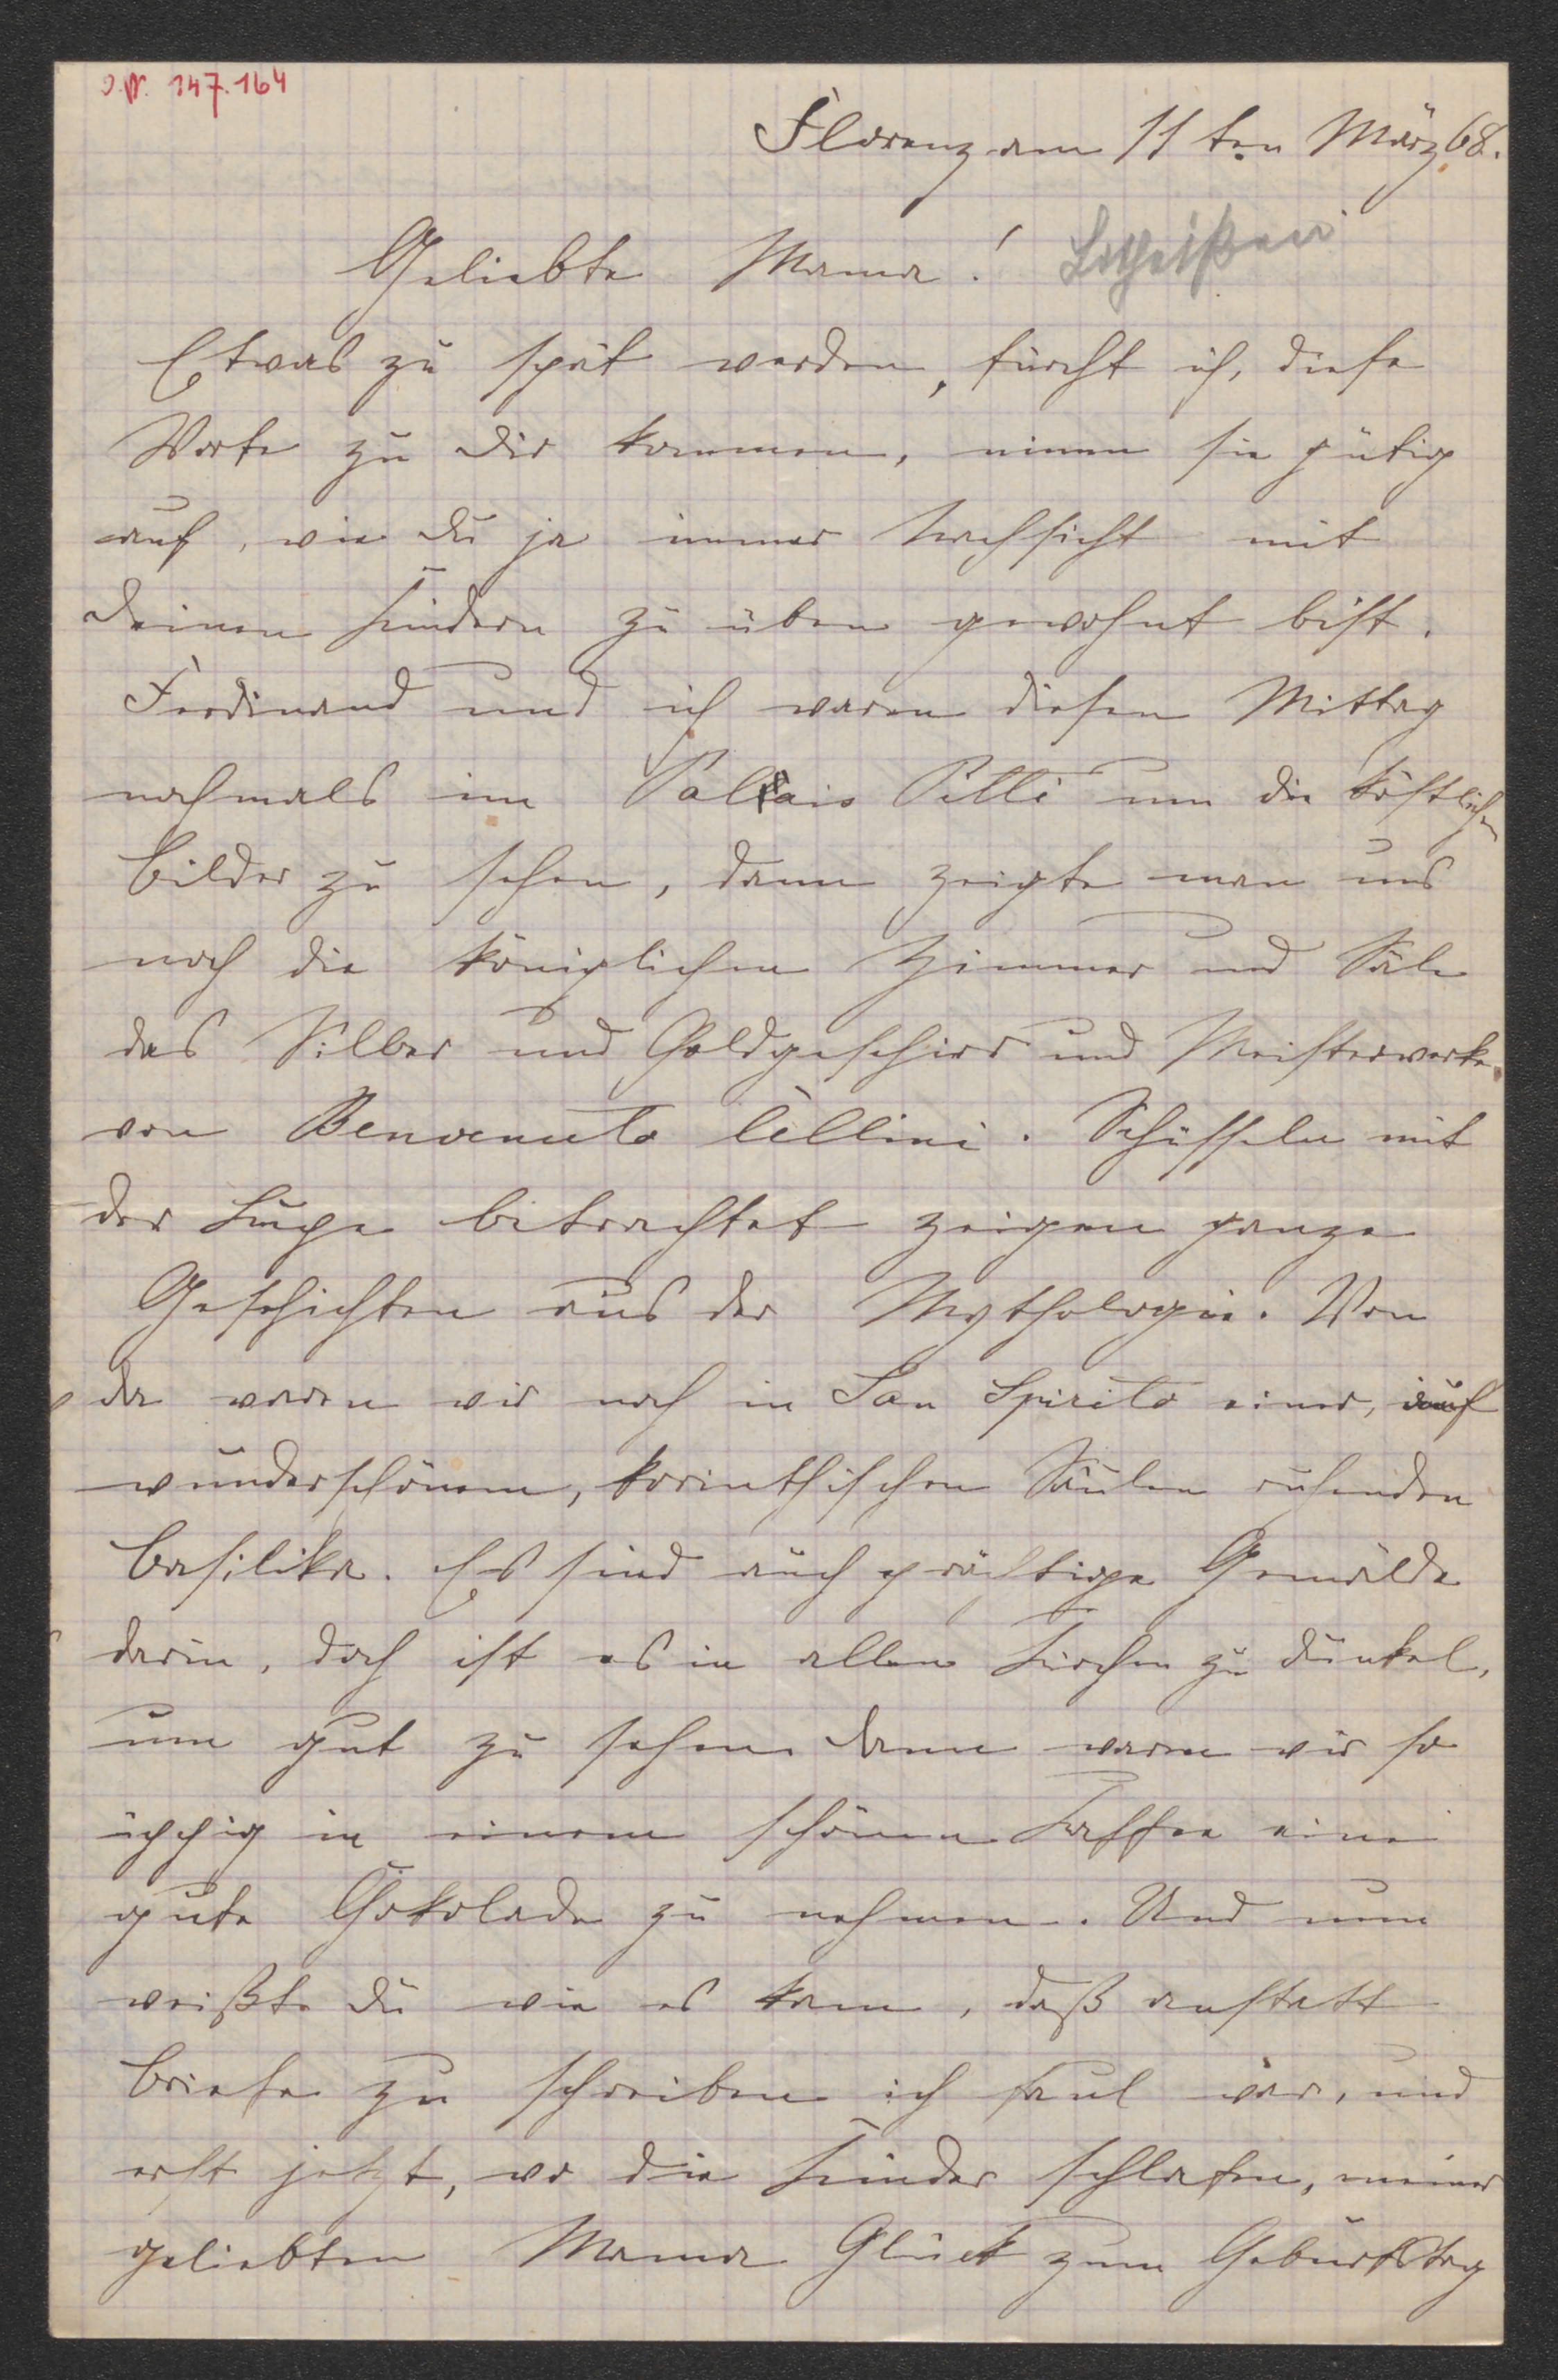 I.N. 147.164
Florenz am 11 ten März 68.
Geliebte Mama!
Etwas zu spät werden, fürcht ich, diese
Worte zu Dir kommen, nimm sie gütig
auf, wie Du ja immer Nachsicht mit
Deinen Kindern zu üben gewohnt bist.
Ferdinand und ich waren diesen Mittag
nochmals im Palais Pitti um die köstlichen
Bilder zu sehen, dann zeigte man uns
noch die königlichen Zimmer und Säle
das Silber und Goldgeschirr und Meisterwerke
von Benvenuto Cellini. Schüsseln mit
der Lupe betrachtet zeigen ganze
Geschichten aus der Mythologie. Von
da waren wir noch in San Spirito einer, auf
wunderschönen, korinthischen Säulen ruhenden
Basilika. Es sind auch prächtige Gemälde
darin, doch ist es in allen Kirchen zu dunkel,
um gut zu sehen dann waren wir so
üppig in einem schönen Kaffee eine
gute Chokolade zu nehmen. Und nun
weißt Du wie es kam, daß anstatt
Briefe zu schreiben ich faul war, und
erst jetzt, wo die Kinder schlafen, meiner
geliebten Mama Glück zum Geburtstag